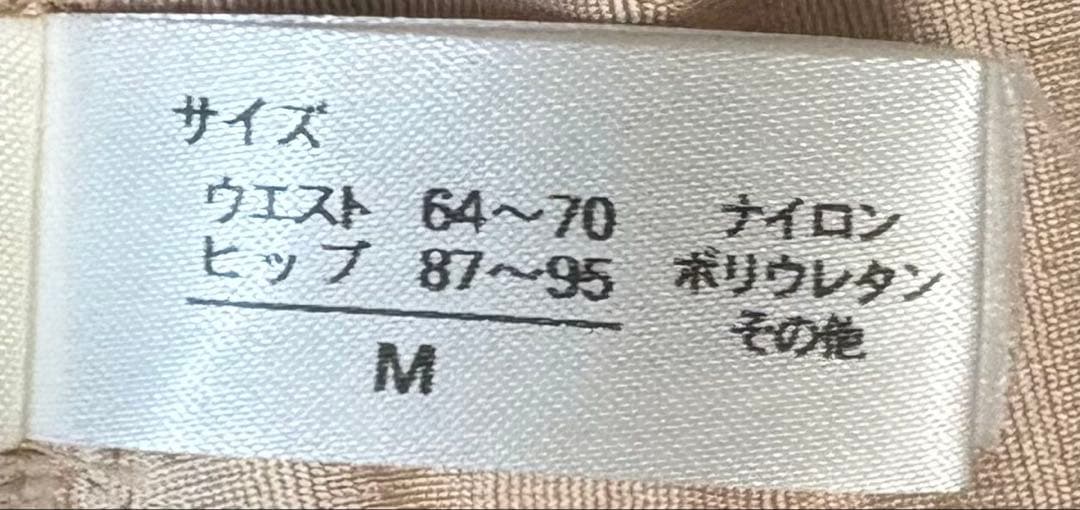 サイズ
ウエスト 64～70
ヒップ 87～95
M
ナイロン
ポリウレタン
その他